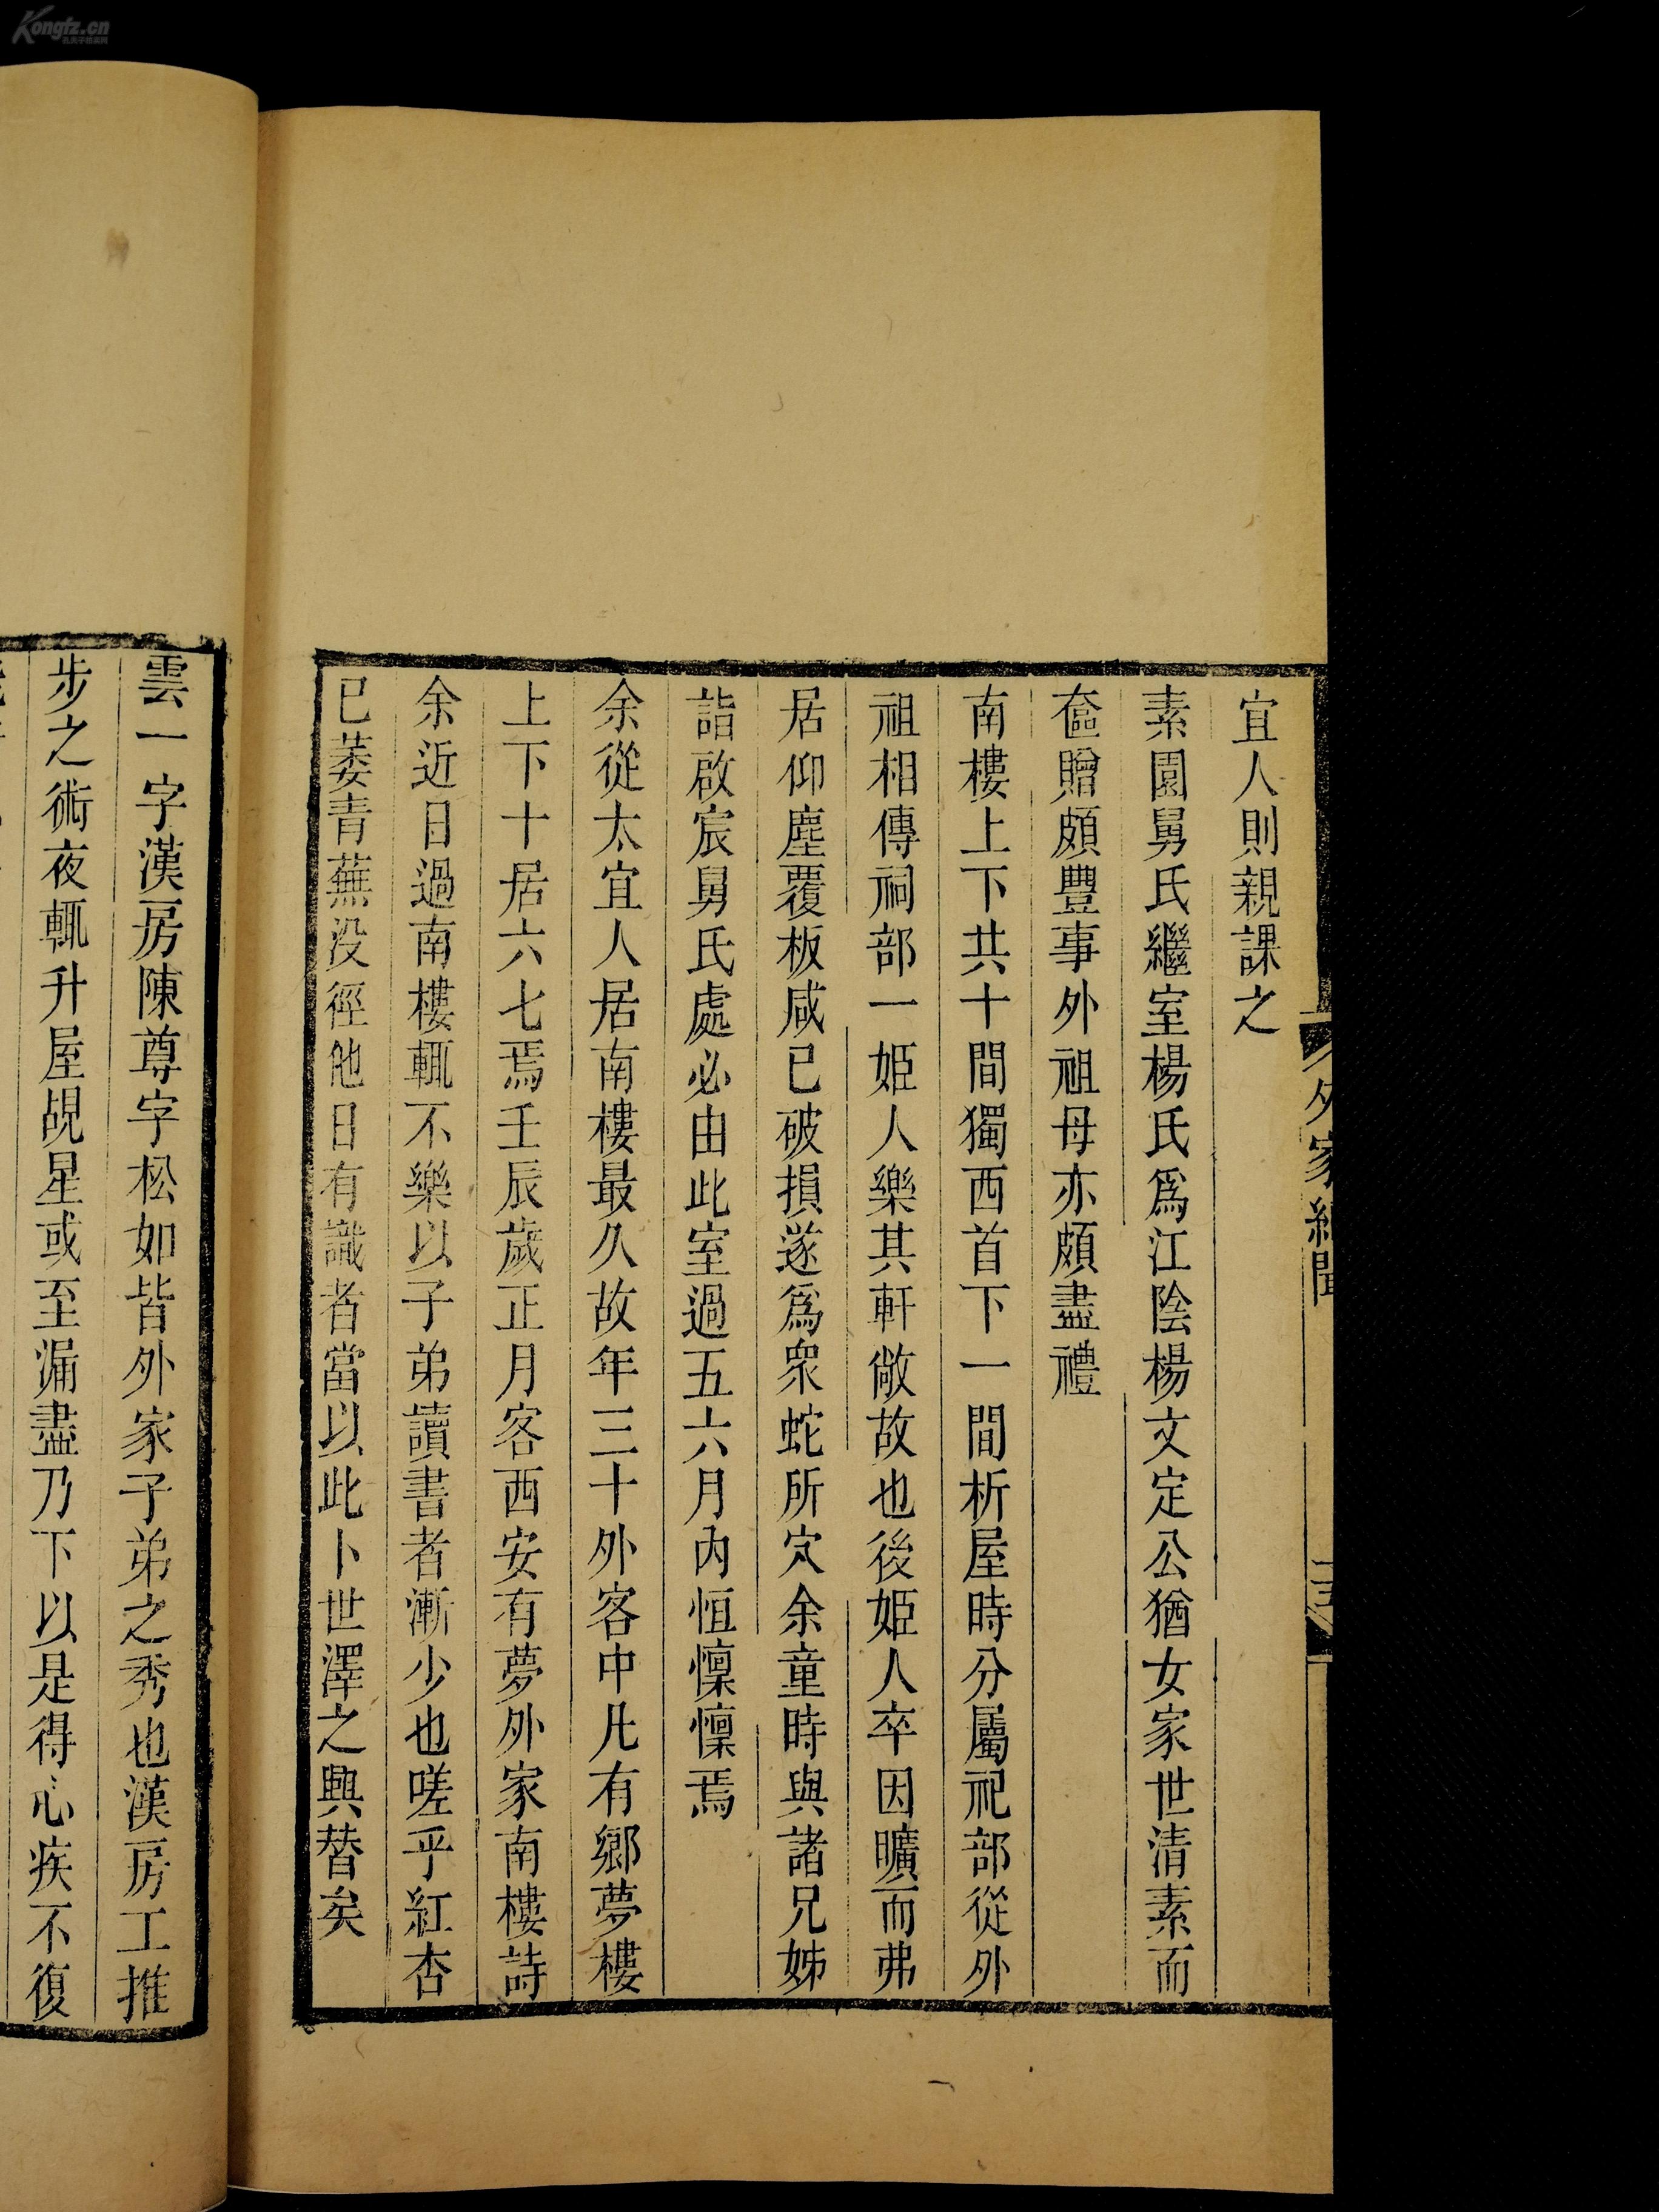 Kongfz.cn
宜人則親課之
素園舅氏繼室楊氏爲江陰楊文定公猶女家世清素而
奩贈頗豐事外祖母亦頗盡禮
南樓上下共十間獨西首下一間析屋時分屬祀部從外
祖相傳祠部一姬人樂其軒敞故也後姬人卒因曠而弗
居仰塵覆板咸已破損遂爲衆蛇所穴余童時與諸兄姊
詣啟宸舅氏處必由此室過五六月內恒懍懍焉
余從太宜人居南樓最久故年三十外客中凡有鄉夢樓
上下十居六七焉壬辰歲正月客西安有夢外家南樓詩
余近日過南樓輒不樂以子弟讀書者漸少也嗟乎紅杏
已萎青蕪没徑他日有識者當以此卜世澤之興替矣
外家紀聞
雲一字漢房陳尊字松如皆外家子弟之秀也漢房工推
步之術夜輒升屋覘星或至漏盡乃下以是得心疾不復